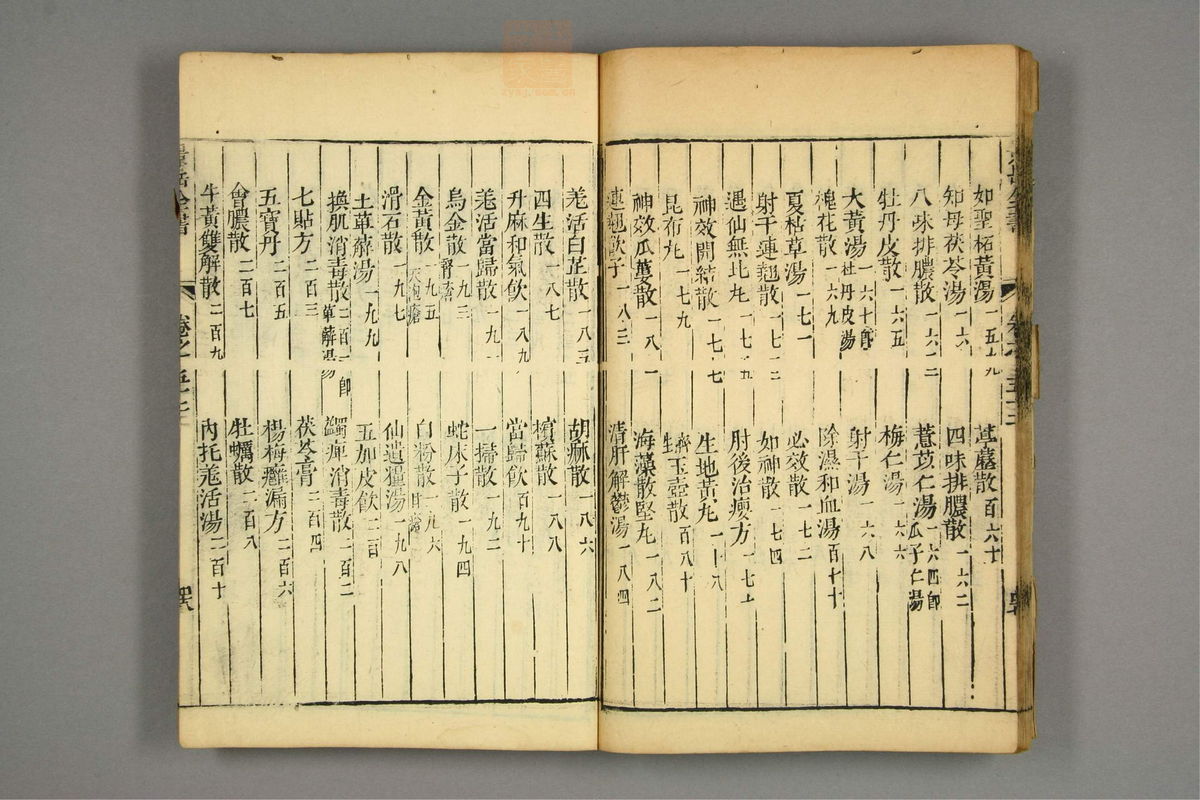 如聖柘黃湯 一五九
葶藶散 百六十
知母茯苓湯 一六
四味排膿散 一六二
八味排膿散 一六三
薏苡仁湯 一六四即瓜子仁湯
牡丹皮散 一六五
梅仁湯 一六六
大黃湯 一六十即牡丹皮湯
射干湯 一六八
槐花散 一六九
除濕和血湯 百十十
夏枯草湯 一七一
必效散 一七二
射干連翹散 一七三
如神散 一七四
遇仙無比丸 一七五
肘後治癭方 一七
神效開結散 一七七
生地黃丸 一十八
昆布丸 一七九
蠐玉壺散 百八十
神效瓜蔞散 一八一
海藻散堅丸 一八二
連翹飲子 一八三
清肝解鬱湯 一八四
羌活白芷散 一八五
胡麻散 一八六
四生散 一八七
檳蘇散 一八八
升麻和氣飲 一八九
當歸飲 百九十
羗活當歸散 一九一
一掃散 一九二
烏金散 一九三 臂瘡
蛇床子散 一九四
金黃散 一九五 天泡瘡
白粉散 一九六 疳瘡
滑石散 一九七
仙遺糧湯 一九八
土萆薢湯 一九九
五加皮飲 二百
換肌消毒散 二百一即萆薢湯
蠲痺消毒散 二百二
七貼方 二百三
茯苓膏 二百四
五寶丹 二百五
楊梅癰漏方 二百六
會膿散 二百七
牡蠣散 二百八
牛黃雙解散 二百九
內托羗活湯 二百十
景岳全書
卷之五十三